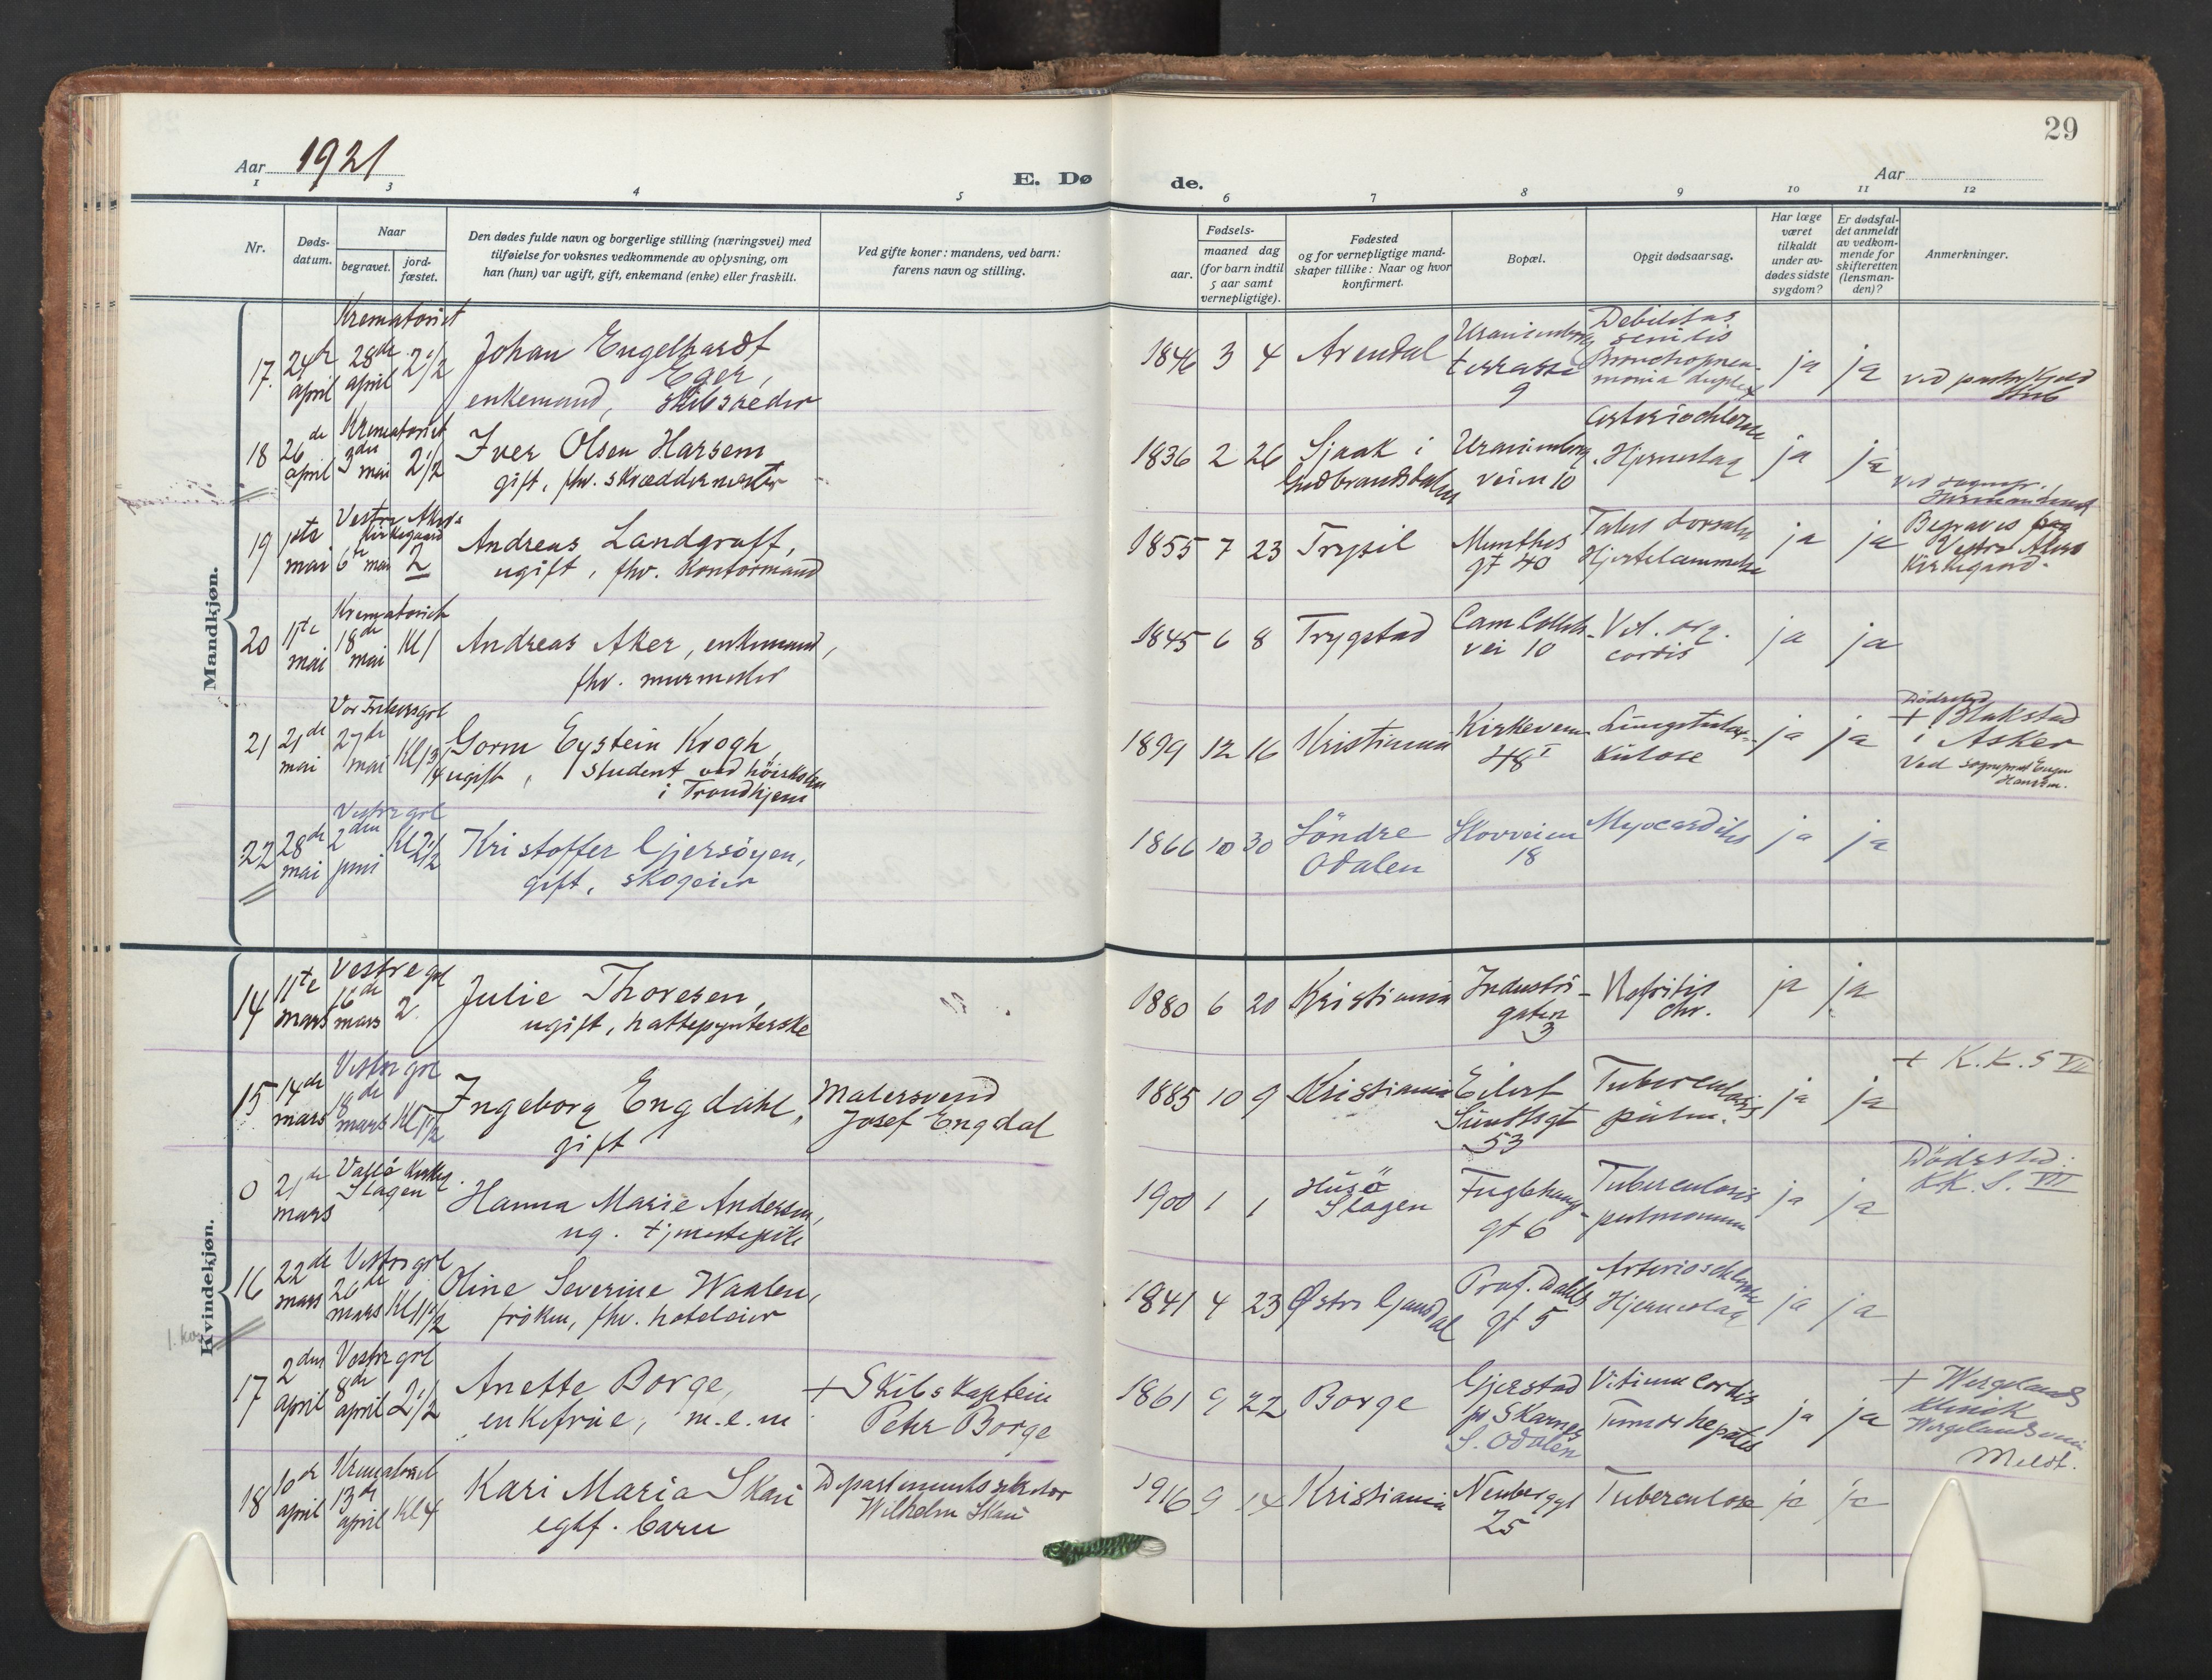 29
Aar 1921
E. Dø
de.
Aar
1
3
4
5
6
7
8
9
10
11
12
Nr.
Døds-
datum.
Naar
begravet.
jord-
fæstet.
Den dødes fulde navn og borgerlige stilling (næringsvei) med
tilføielse for voksnes vedkommende av oplysning, om
han (hun) var ugift, gift, enkemand (enke) eller fraskilt.
Ved gifte koner: mandens, ved barn:
farens navn og stilling.
Fødsels-
aar.
maaned dag
(for barn indtil
5 aar samt
vernepligtige).
Fødested
og for vernepligtige mand-
skaper tillike: Naar og hvor
konfirmert.
Bopæl.
Opgit dødsaarsag.
Har læge
været
tilkaldt
under av-
dødes sidste
sygdom?
Er dødsfal-
det anmeldt
av vedkom-
mende for
skifteretten
(lensman-
den)?
Anmerkninger.
Mandkjøn.
Krematoriet
17. 24de april 28de april 2 1/2
Johan Engelhardt
Eger,
enkemand, skibsreder
1846 3 4 Arendal
Uranienborg
terrasse
9
Debilitas
senilis
Bronchopneu-
monia duplex
ja ja
Krematoriet
18 26de april 3die mai 2 1/2
Iver Olsen Harsem
gift, fhv. skræddermester
1836 2 26 Sjaak i
Gudbrandsdalen
Uranienborg
veien 10
Hjerneslag
ja ja
Vestre Akers
kirkegaard
19 1ste mai 6te mai 2
Andreas Landgraff,
ugift, fhv. Kontormand
1855 7 23 Trysil
Munthes
gt 40
Tabes dorsalis
Hjertelammelse
ja ja
Begraves paa
Vestre Akers
Kirkegaard.
Krematoriet
20 11te mai 18de mai Kl 1
Andreas Aker, enkemand,
fhv. murmester
1845 6 8 Trygstad
Cam. Collets
vei 10
Vit. org.
cordis
ja ja
Vor Frelsersgrl
21 21de mai 27de mai Kl 13/4
Gorm Eystein Krogh,
ugift, student ved høiskolen
i Trondhjem
1899 12 16 Kristiania
Kirkeveien
48 I
Lungetuber-
kulose
ja ja
Dødssted
+ Blakstad
i Asker
Ved sogneprest
Hansen.
Vestre grl
22 28de mai 2den juni Kl 2 1/2
Kristoffer Gjersøyen,
gift, skogeier
1866 10 30 Søndre
Odalen
Skovveien
18
Myocarditis
ja ja
Kvindekjøn.
Vestre grl
14 11te mars 16de mars 2
Julie Thoresen,
ugift, hattepynterske
1880 6 20 Kristiania
Industri-
gaten
3
Nefritis
chr.
ja ja
Vestre grl
15 14de mars 18de mars Kl 1 1/2
Ingeborg Engdahl,
gift
Malersvend
Josef Engdal
1885 10 9 Kristiania
Eilert
Sundtsgt
53
Tuberculosis
pulm.
ja ja
+ K.K.S VII
Slagen
0 21de mars
Hanna Marie Andersen,
ug. tjenestepike
1900 1 1 Husø
Slagen
Fuglehaug-
gt 6
Tuberculosis
pulmonum
ja ja
Dødssted:
K.K.S. VII
Vestre grl
16 22de mars 26de mars Kl 1 1/2
Oline Severine Waalen,
frøken, fhv. hoteleier
1841 4 23 Østre Gausdal
Prof. Dahls
gt 5
Arteriosclerose
Hjerneslag
ja ja
Vestre grl
17 2den april 8de april 2 1/2
Anette Borge,
enkefrue, m.e.m
+ Skibskaptein
Peter Borge
1861 9 22 Borge
Gjerstad
pr Skarnes
S. Odalen
Vitium Cordis
Tumor hepatis
ja ja
+ Wergelands
klinik
Wergelandsveien
Krematoriet
18 10de april 13de april Kl 4
Kari Maria Skau
egtf. barn
Departementssekretær
Wilhelm Skau
1916 9 14 Kristiania
Neuberggt
25
Tuberculose
ja ja
Meldt.